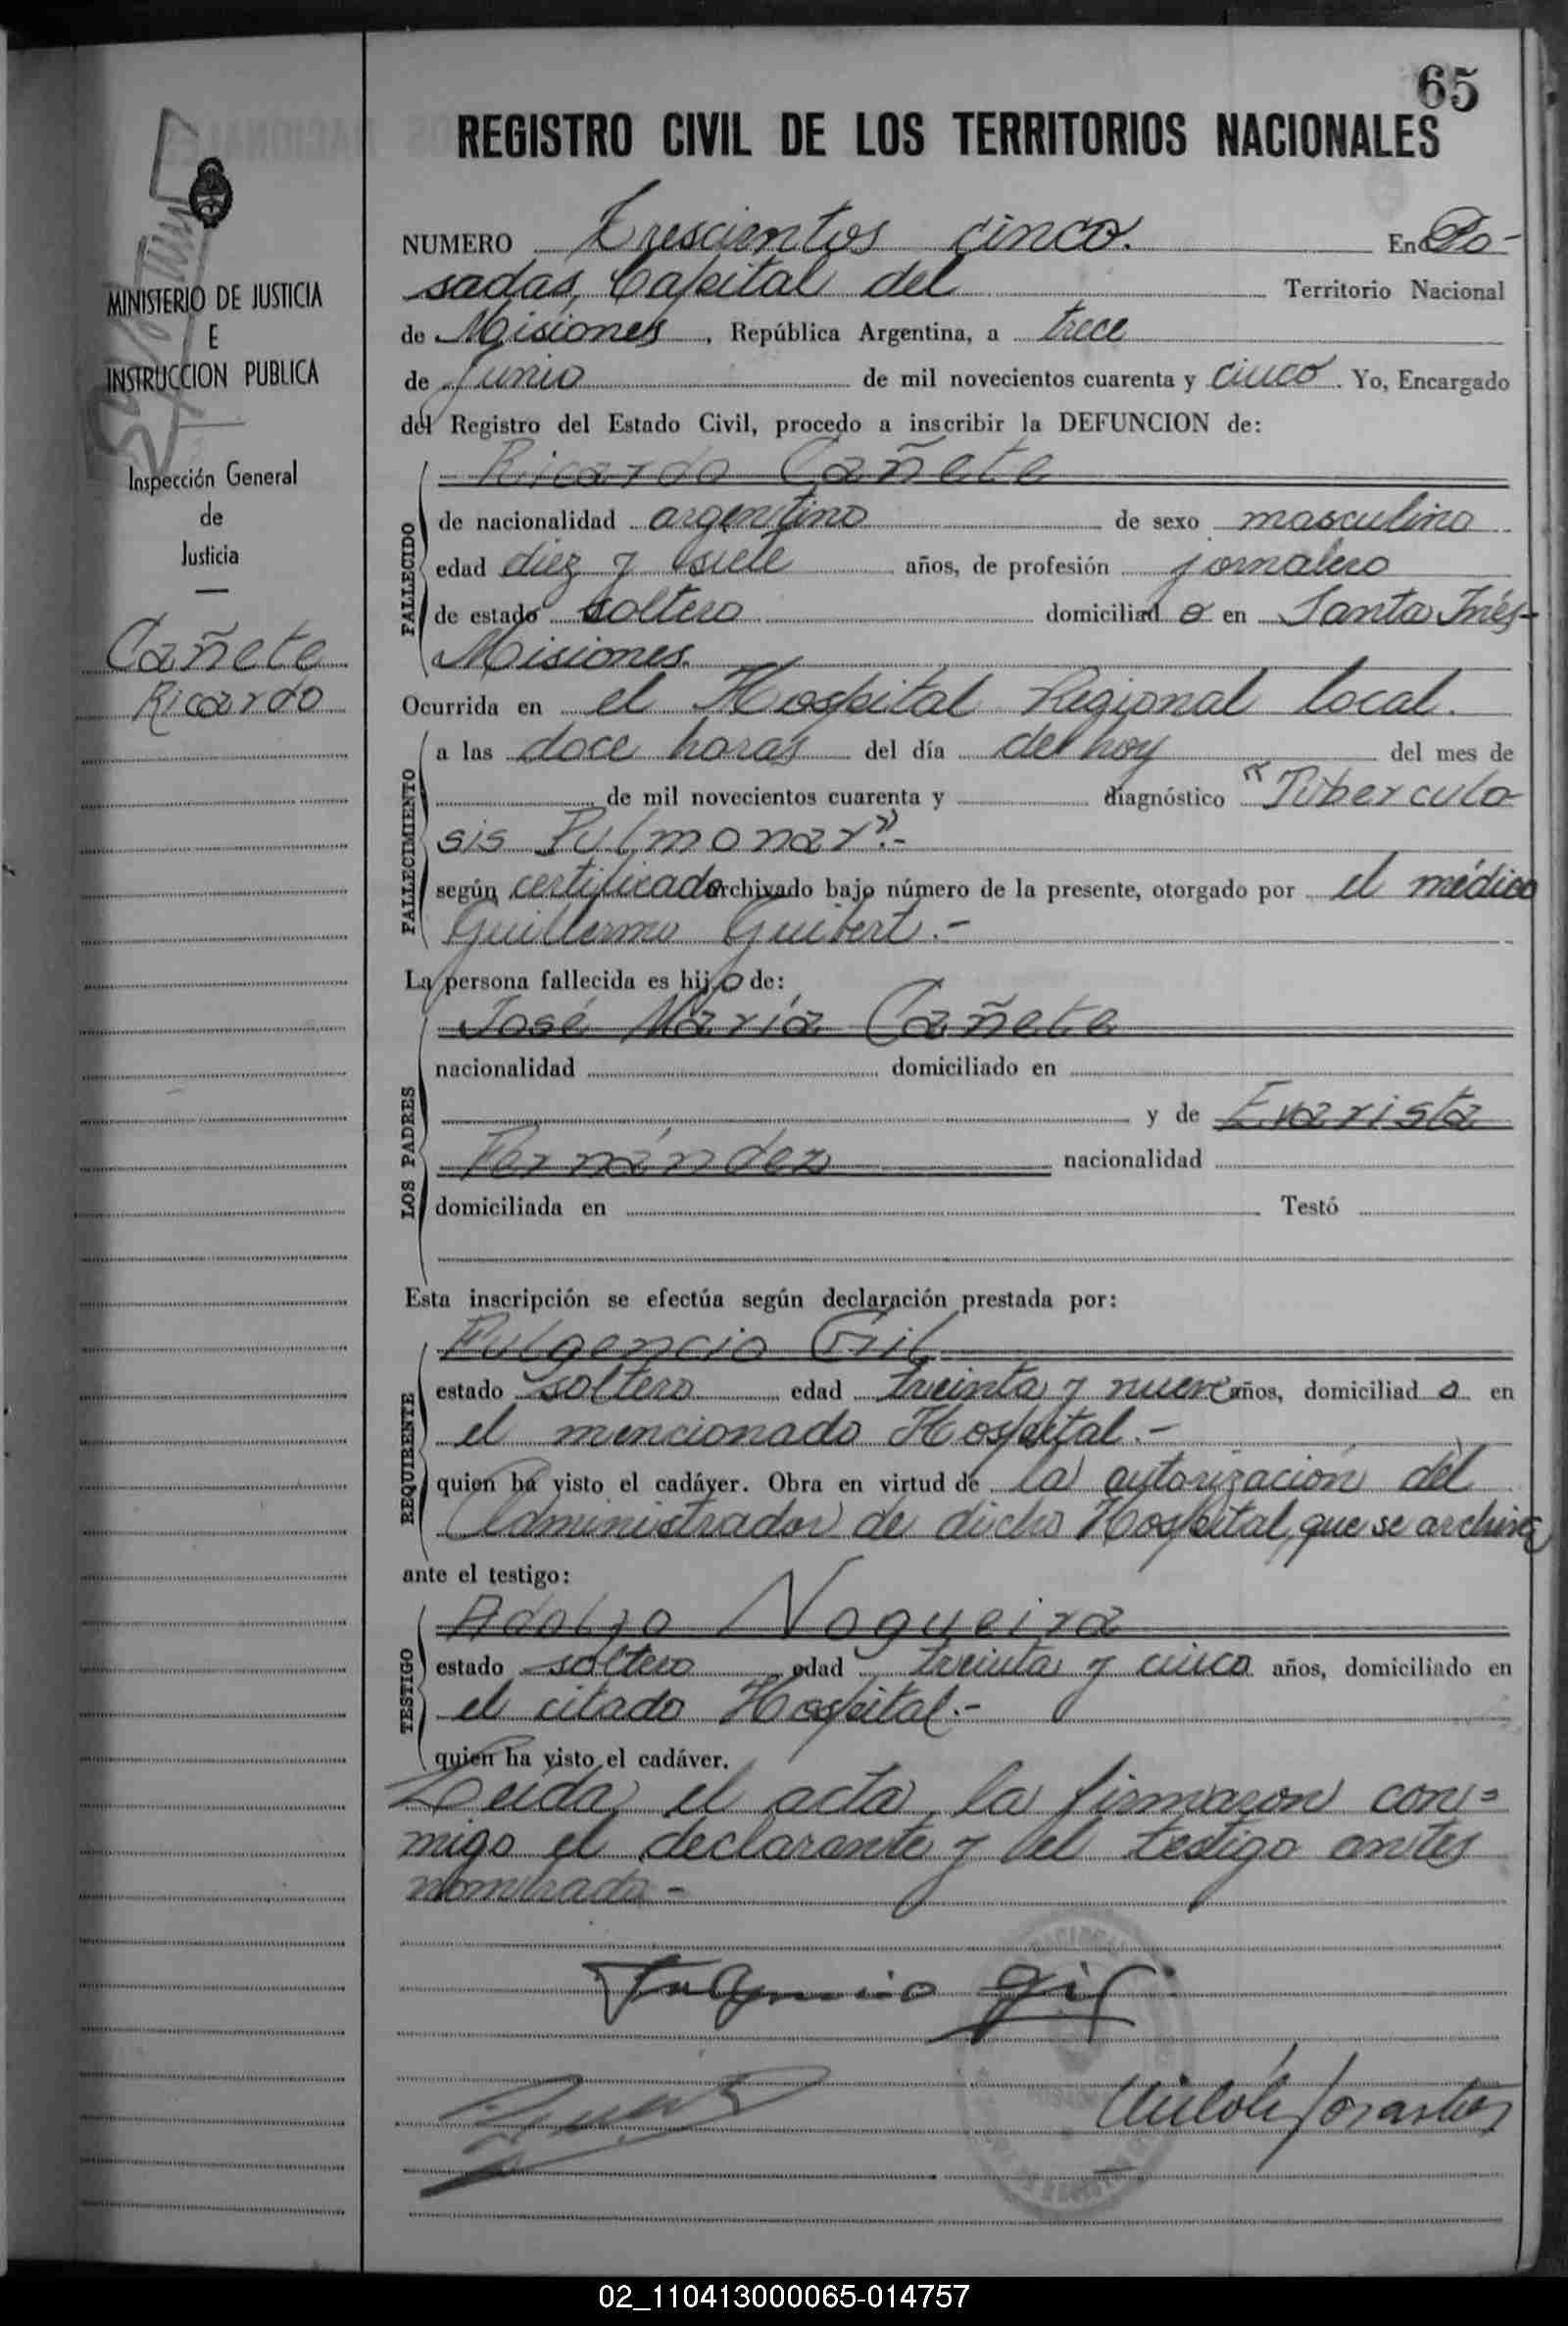 65
REGISTRO CIVIL DE LOS TERRITORIOS NACIONALES
MINISTERIO DE JUSTICIA
E
INSTRUCCION PUBLICA
Inspección General
de
Justicia
Cañete
Ricardo
NUMERO Trescientos cinco. En Po-
sadas, Capital del Territorio Nacional
de Misiones, República Argentina, a trece
de Junio de mil novecientos cuarenta y cinco. Yo, Encargado
del Registro del Estado Civil, procedo a inscribir la DEFUNCION de:
Ricardo Cañete
FALLECIDO
de nacionalidad argentino de sexo masculino
edad diez y siete años, de profesión jornalero
de estado soltero domiciliado en Santa Inés-
Misiones.
Ocurrida en el Hospital Regional local.
FALLECIMIENTO
a las doce horas del día de hoy del mes de
de mil novecientos cuarenta y diagnóstico "Tubercula
sis Pulmonar".-
según certificado archivado bajo número de la presente, otorgado por el médico
Guillermo Guibert.-
La persona fallecida es hijo de:
LOS PADRES
José María Cañete
nacionalidad domiciliado en
y de Evarista
Fernández nacionalidad
domiciliada en Testó
Esta inscripción se efectúa según declaración prestada por:
REQUIRENTE
Fulgencio Gil
estado soltero edad treinta y nueve años, domiciliado en
el mencionado Hospital.-
quien ha visto el cadáver. Obra en virtud de la autorización del
Administrador de dicho Hospital, que se archiva
ante el testigo:
TESTIGO
Adolfo Nogueira
estado soltero edad treinta y cinco años, domiciliado en
el citado Hospital.-
quien ha visto el cadáver.
Leida el acta, la firmaron con=
migo el declarante y el testigo antes
nombrado-
Fulgencio Gil
02_110413000065-014757